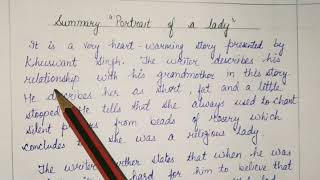 Summary "Portrait of a lady"
It is a very heart-warming story presented by
Khuswant Singh. The writer describes his
relationship with his grandmother in this story.
He describes her as short, fat and a little
stooped. He tells that she always used to chant
silent from beads of rosery which
concludes she was a religious lady.
The writer further states that when he was
hard for him to believe that